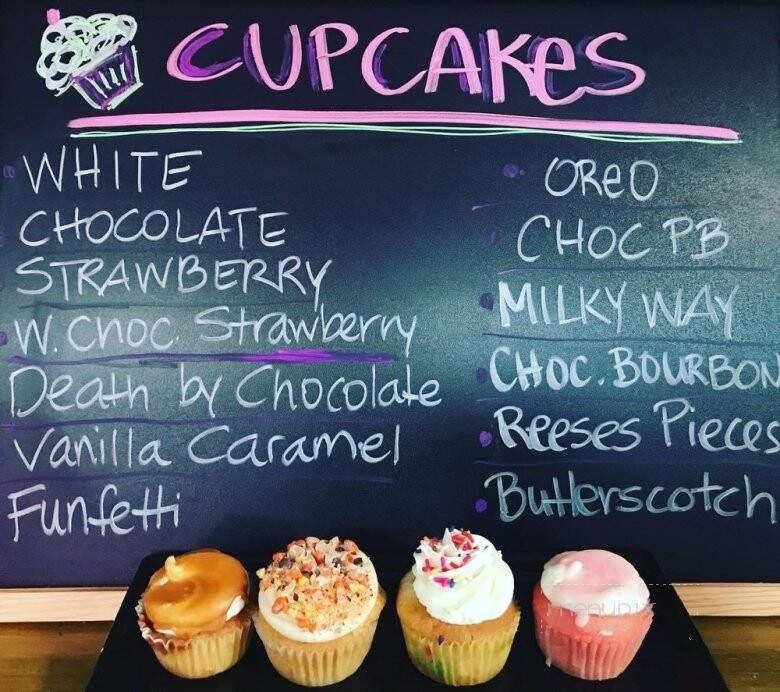 CUPCAKes
WHITE
CHOCOLATE
STRAWBERRY
W. CHOC. Strawberry
Death by Chocolate
Vanilla Caramel
Funfetti
OReO
CHOC PB
MILKY WAY
CHOC. BOURBON
Reeses Pieces
Butterscotch